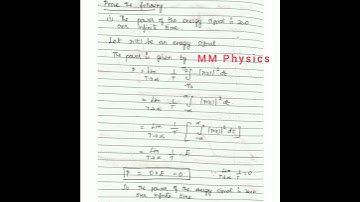 Prove the following
(i) The power of the energy signal is zero
over infinite time.
Let x(t) be an energy signal
The power is given by MM Physics
P = Lim T→∞ 1/T ∫ -T/2 T/2 |x(t)|² dt
= Lim T→∞ 1/T ∫ -∞ ∞ |x(t)|² dt
= Lim T→∞ 1/T [ ∫ -∞ ∞ |x(t)|² dt ]
= Lim T→∞ 1/T E
P = 0×E = 0 ∵ Lim T→∞ 1/T = 0
So the power of the energy signal is zero
over infinite time